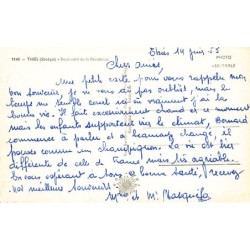 1140 - THIÈS (Sénégal) - Boulevard de la Résidence
Thiès 14 juin 55
PHOTO
Chers amis,
Une petite carte pour vous rappeler mon
bon souvenir, je ne vous ai pas oubliés, mais le
temps me semble court ici et vraiment j'ai la
bonne vie. Il fait excessivement chaud en ce moment
mais les enfants supportent bien le climat, Bernard
commence à parler et a beaucoup changé, il
pousse comme un champignon. La vie est très
différente de celle de France, mais très agréable.
En vous espérant à tous bonne santé, recevez
nos meilleurs souvenirs.
et Mr